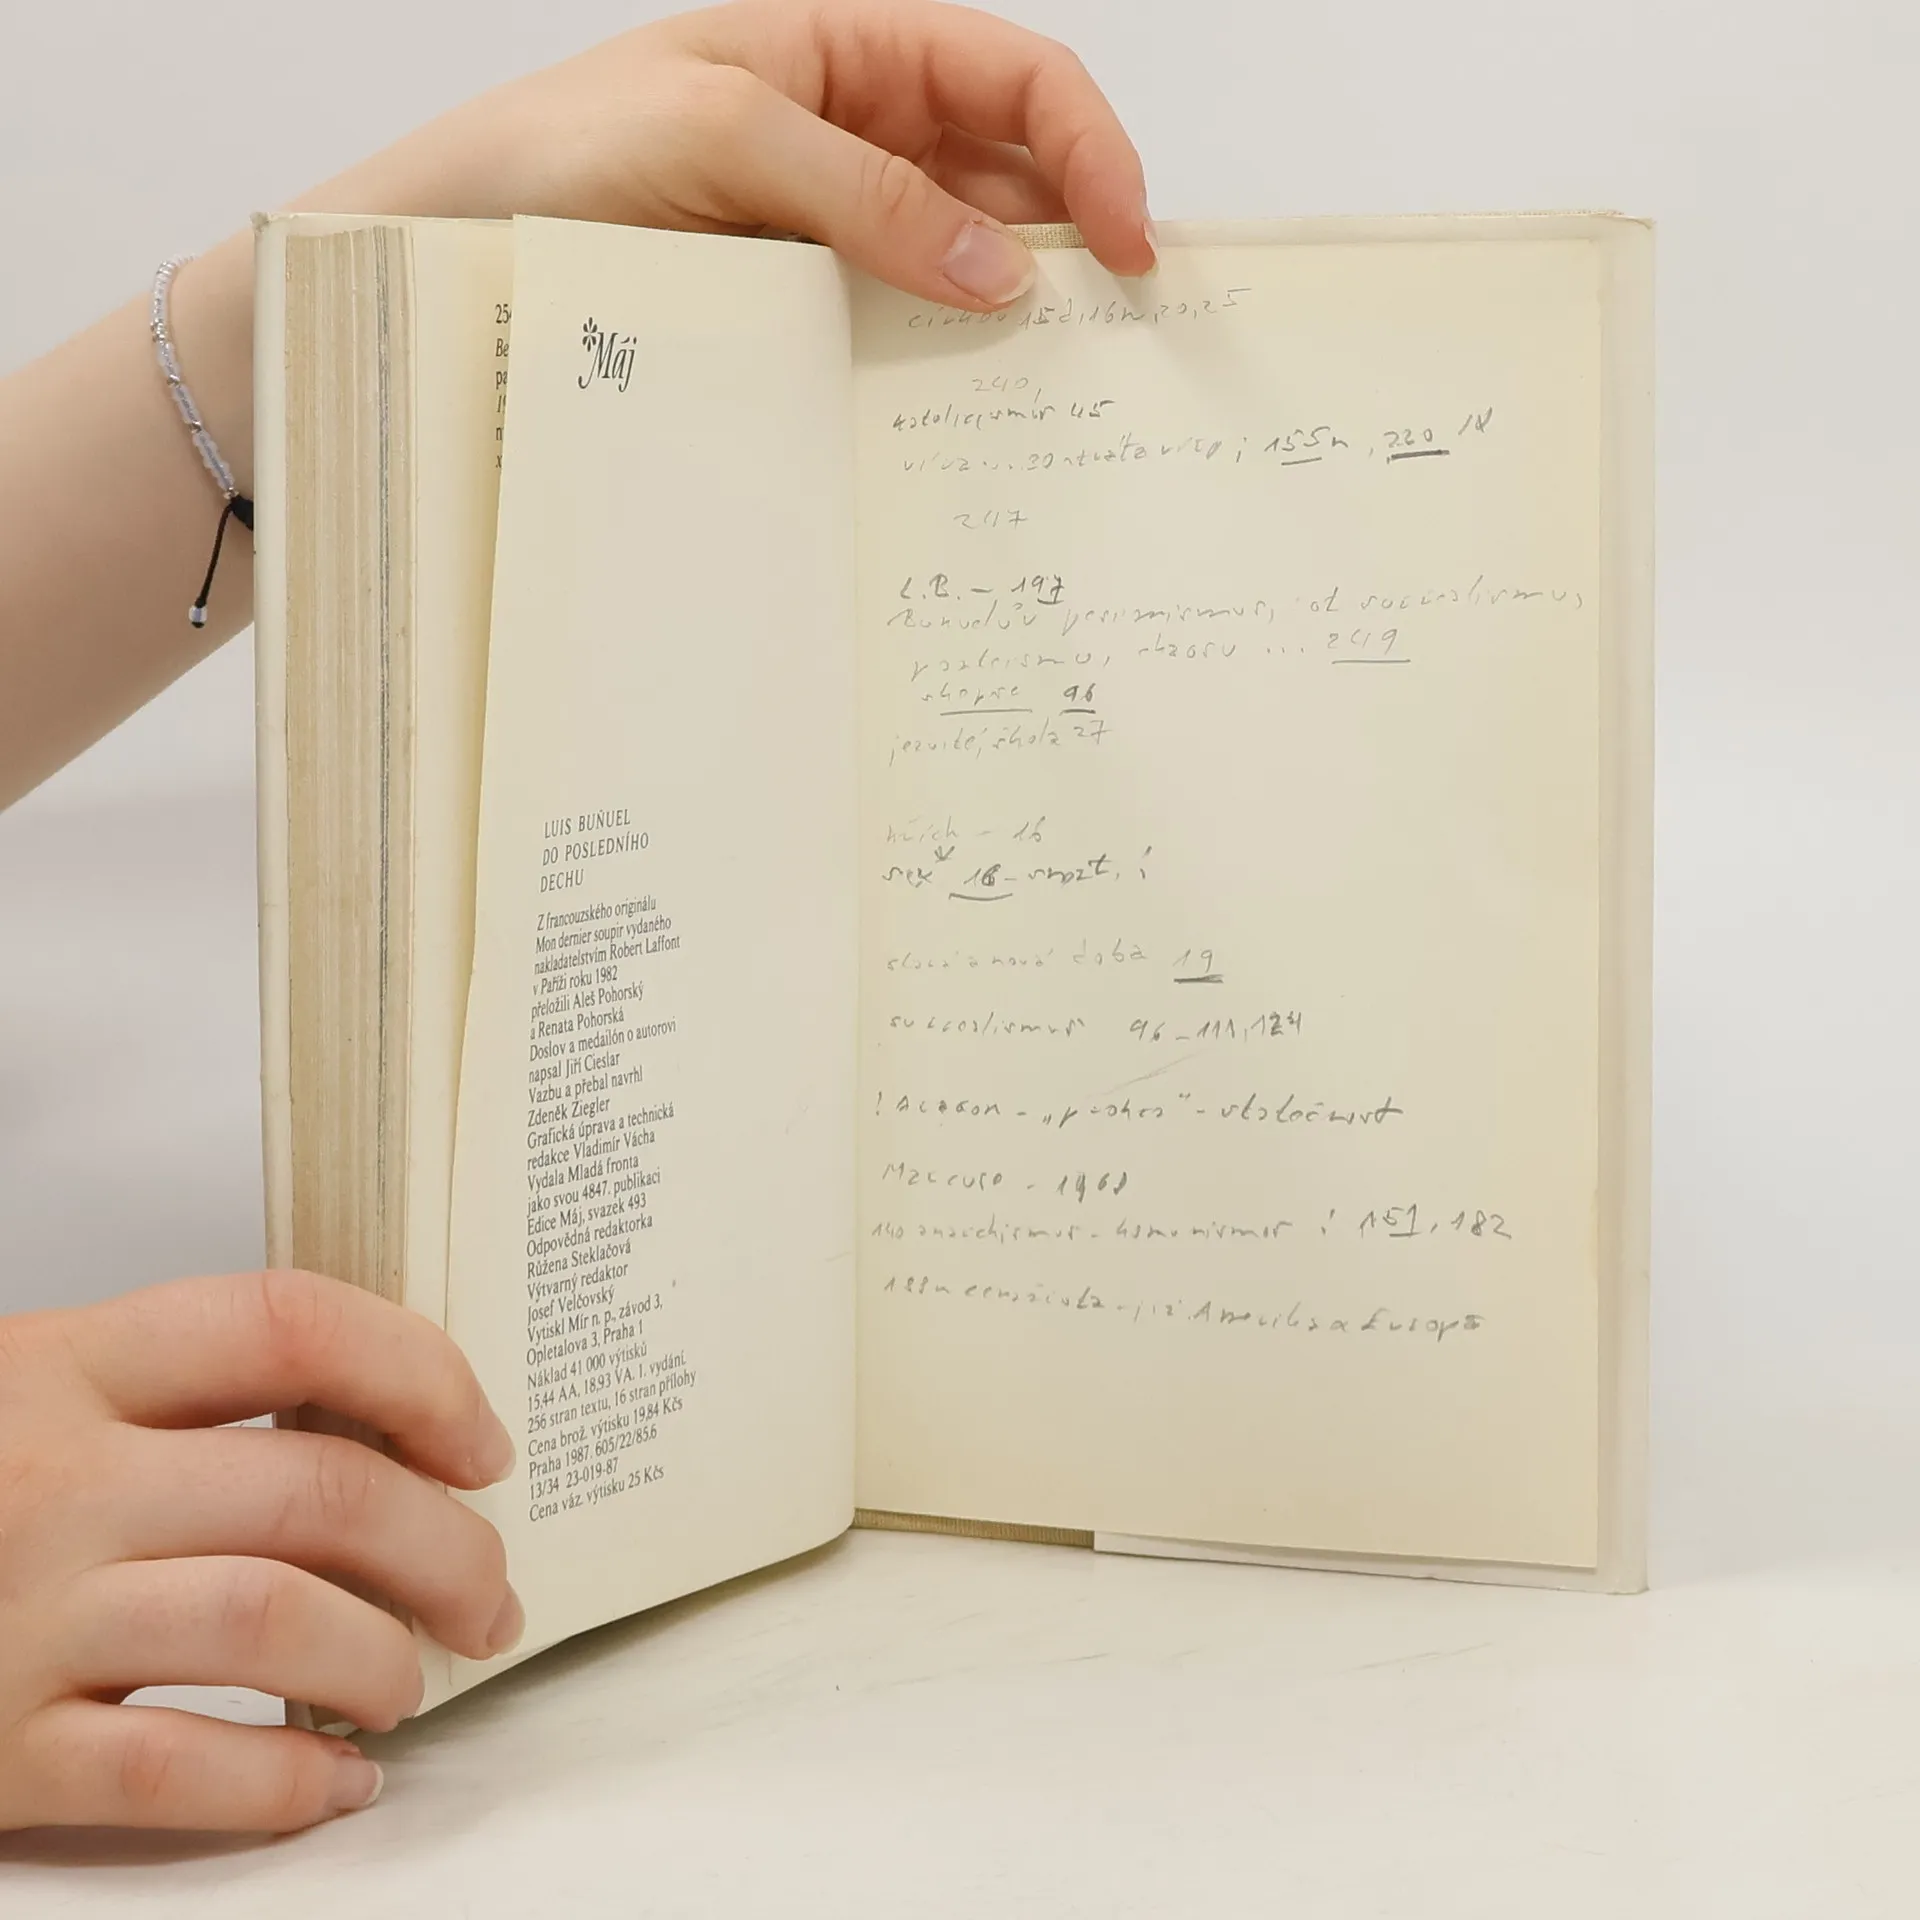 254
Be
pa
19
n
x
Máj
LUIS BUÑUEL
DO POSLEDNÍHO
DECHU
Z francouzského originálu
Mon dernier soupir vydaného
nakladatelstvím Robert Laffont
v Paříži roku 1982
přeložili Aleš Pohorský
a Renata Pohorská
Doslov a medailón o autorovi
napsal Jiří Cieslar
Vazbu a přebal navrhl
Zdeněk Ziegler
Grafická úprava a technická
redakce Vladimír Vácha
Vydala Mladá fronta
jako svou 4847. publikaci
Edice Máj, svazek 493
Odpovědná redaktorka
Růžena Steklačová
Výtvarný redaktor
Josef Velčovský
Vytiskl Mír n. p., závod 3,
Opletalova 3, Praha 1
Náklad 41 000 výtisků
15,44 AA, 18,93 VA. 1. vydání.
256 stran textu, 16 stran přílohy
Cena brož. výtisku 19,84 Kčs
Praha 1987. 605/22/85.6
13/34 23-019-87
Cena váz. výtisku 25 Kčs
církev 15d, 16n, 20, 25
240,
katolicismus 45
víra ... 20 ztráta víry ; 155n, 220
247
L.B. - 197
Buñuelův pesimismus, od surrealismu,
... 249
96
jezuité, škola 27
hřích - 16
sex 16 - smrt !
stará a nová doba 19
surrealismus 96 - 111, 124
! Aragon - - statečnost
Marcuse - 1968
140 anarchismus - komunismus ! 151, 182
188n cenzura - Amerika a Evropa